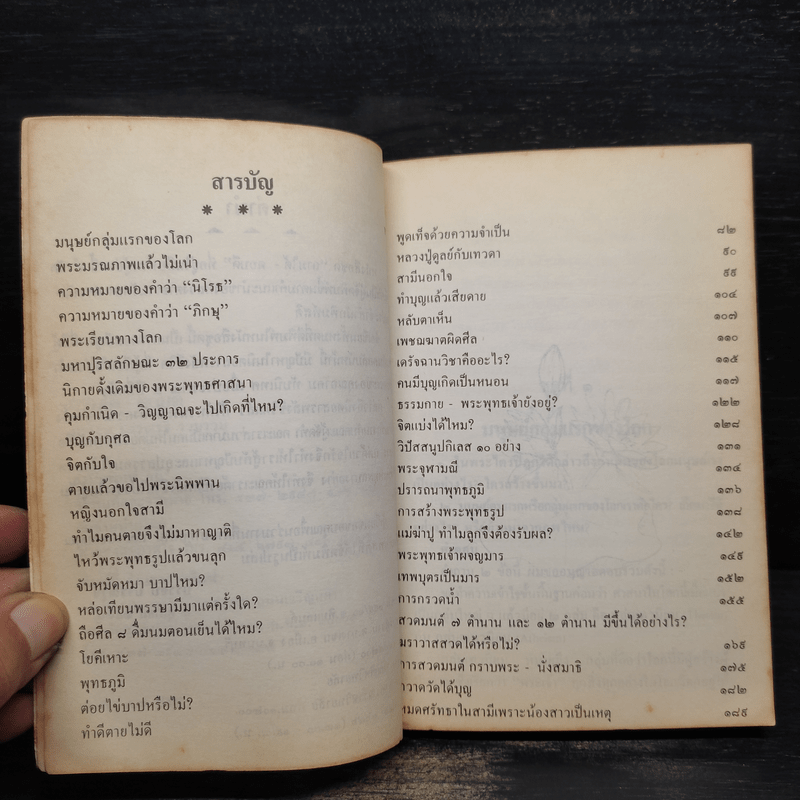 สารบัญ
* * *
มนุษย์กลุ่มแรกของโลก
พระมรณภาพแล้วไม่เน่า
ความหมายของคำว่า “นิโรธ”
ความหมายของคำว่า “ภิกษุ”
พระเรียนทางโลก
มหาปุริสลักษณะ ๓๒ ประการ
นิกายดั้งเดิมของพระพุทธศาสนา
คุมกำเนิด - วิญญาณจะไปเกิดที่ไหน?
บุญกับกุศล
จิตกับใจ
ตายแล้วขอไปพระนิพพาน
หญิงนอกใจสามี
ทำไมคนตายจึงไม่มาหาญาติ
ไหว้พระพุทธรูปแล้วขนลุก
จับหมัดหมา บาปไหม?
หล่อเทียนพรรษามีมาแต่ครั้งใด?
ถือศีล ๘ ดื่มนมตอนเย็นได้ไหม?
โยคีเหาะ
พุทธภูมิ
ต่อยไข่บาปหรือไม่?
ทำดีตายไม่ดี
พูดเท็จด้วยความจำเป็น ๘๒
หลวงปู่ดูลย์กับเทวดา ๙๐
สามีนอกใจ ๙๙
ทำบุญแล้วเสียดาย ๑๐๔
หลับตาเห็น ๑๐๗
เพชฌฆาตผิดศีล ๑๑๐
เดรัจฉานวิชาคืออะไร? ๑๑๕
คนมีบุญเกิดเป็นหนอน ๑๑๗
ธรรมกาย - พระพุทธเจ้ายังอยู่? ๑๒๒
จิตแบ่งได้ไหม? ๑๒๘
วิปัสสนูปกิเลส ๑๐ อย่าง ๑๓๑
พระจุฬามณี ๑๓๔
ปรารถนาพุทธภูมิ ๑๓๖
การสร้างพระพุทธรูป ๑๓๘
แม่ฆ่าปู ทำไมลูกจึงต้องรับผล? ๑๔๒
พระพุทธเจ้าผจญมาร ๑๔๙
เทพบุตรเป็นมาร ๑๕๒
การกรวดน้ำ ๑๕๕
สวดมนต์ ๗ ตำนาน และ ๑๒ ตำนาน มีขึ้นได้อย่างไร?
ฆราวาสสวดได้หรือไม่? ๑๖๙
การสวดมนต์ กราบพระ - นั่งสมาธิ ๑๗๕
กวาดวัดได้บุญ ๑๘๒
หมดศรัทธาในสามีเพราะน้องสาวเป็นเหตุ ๑๘๙